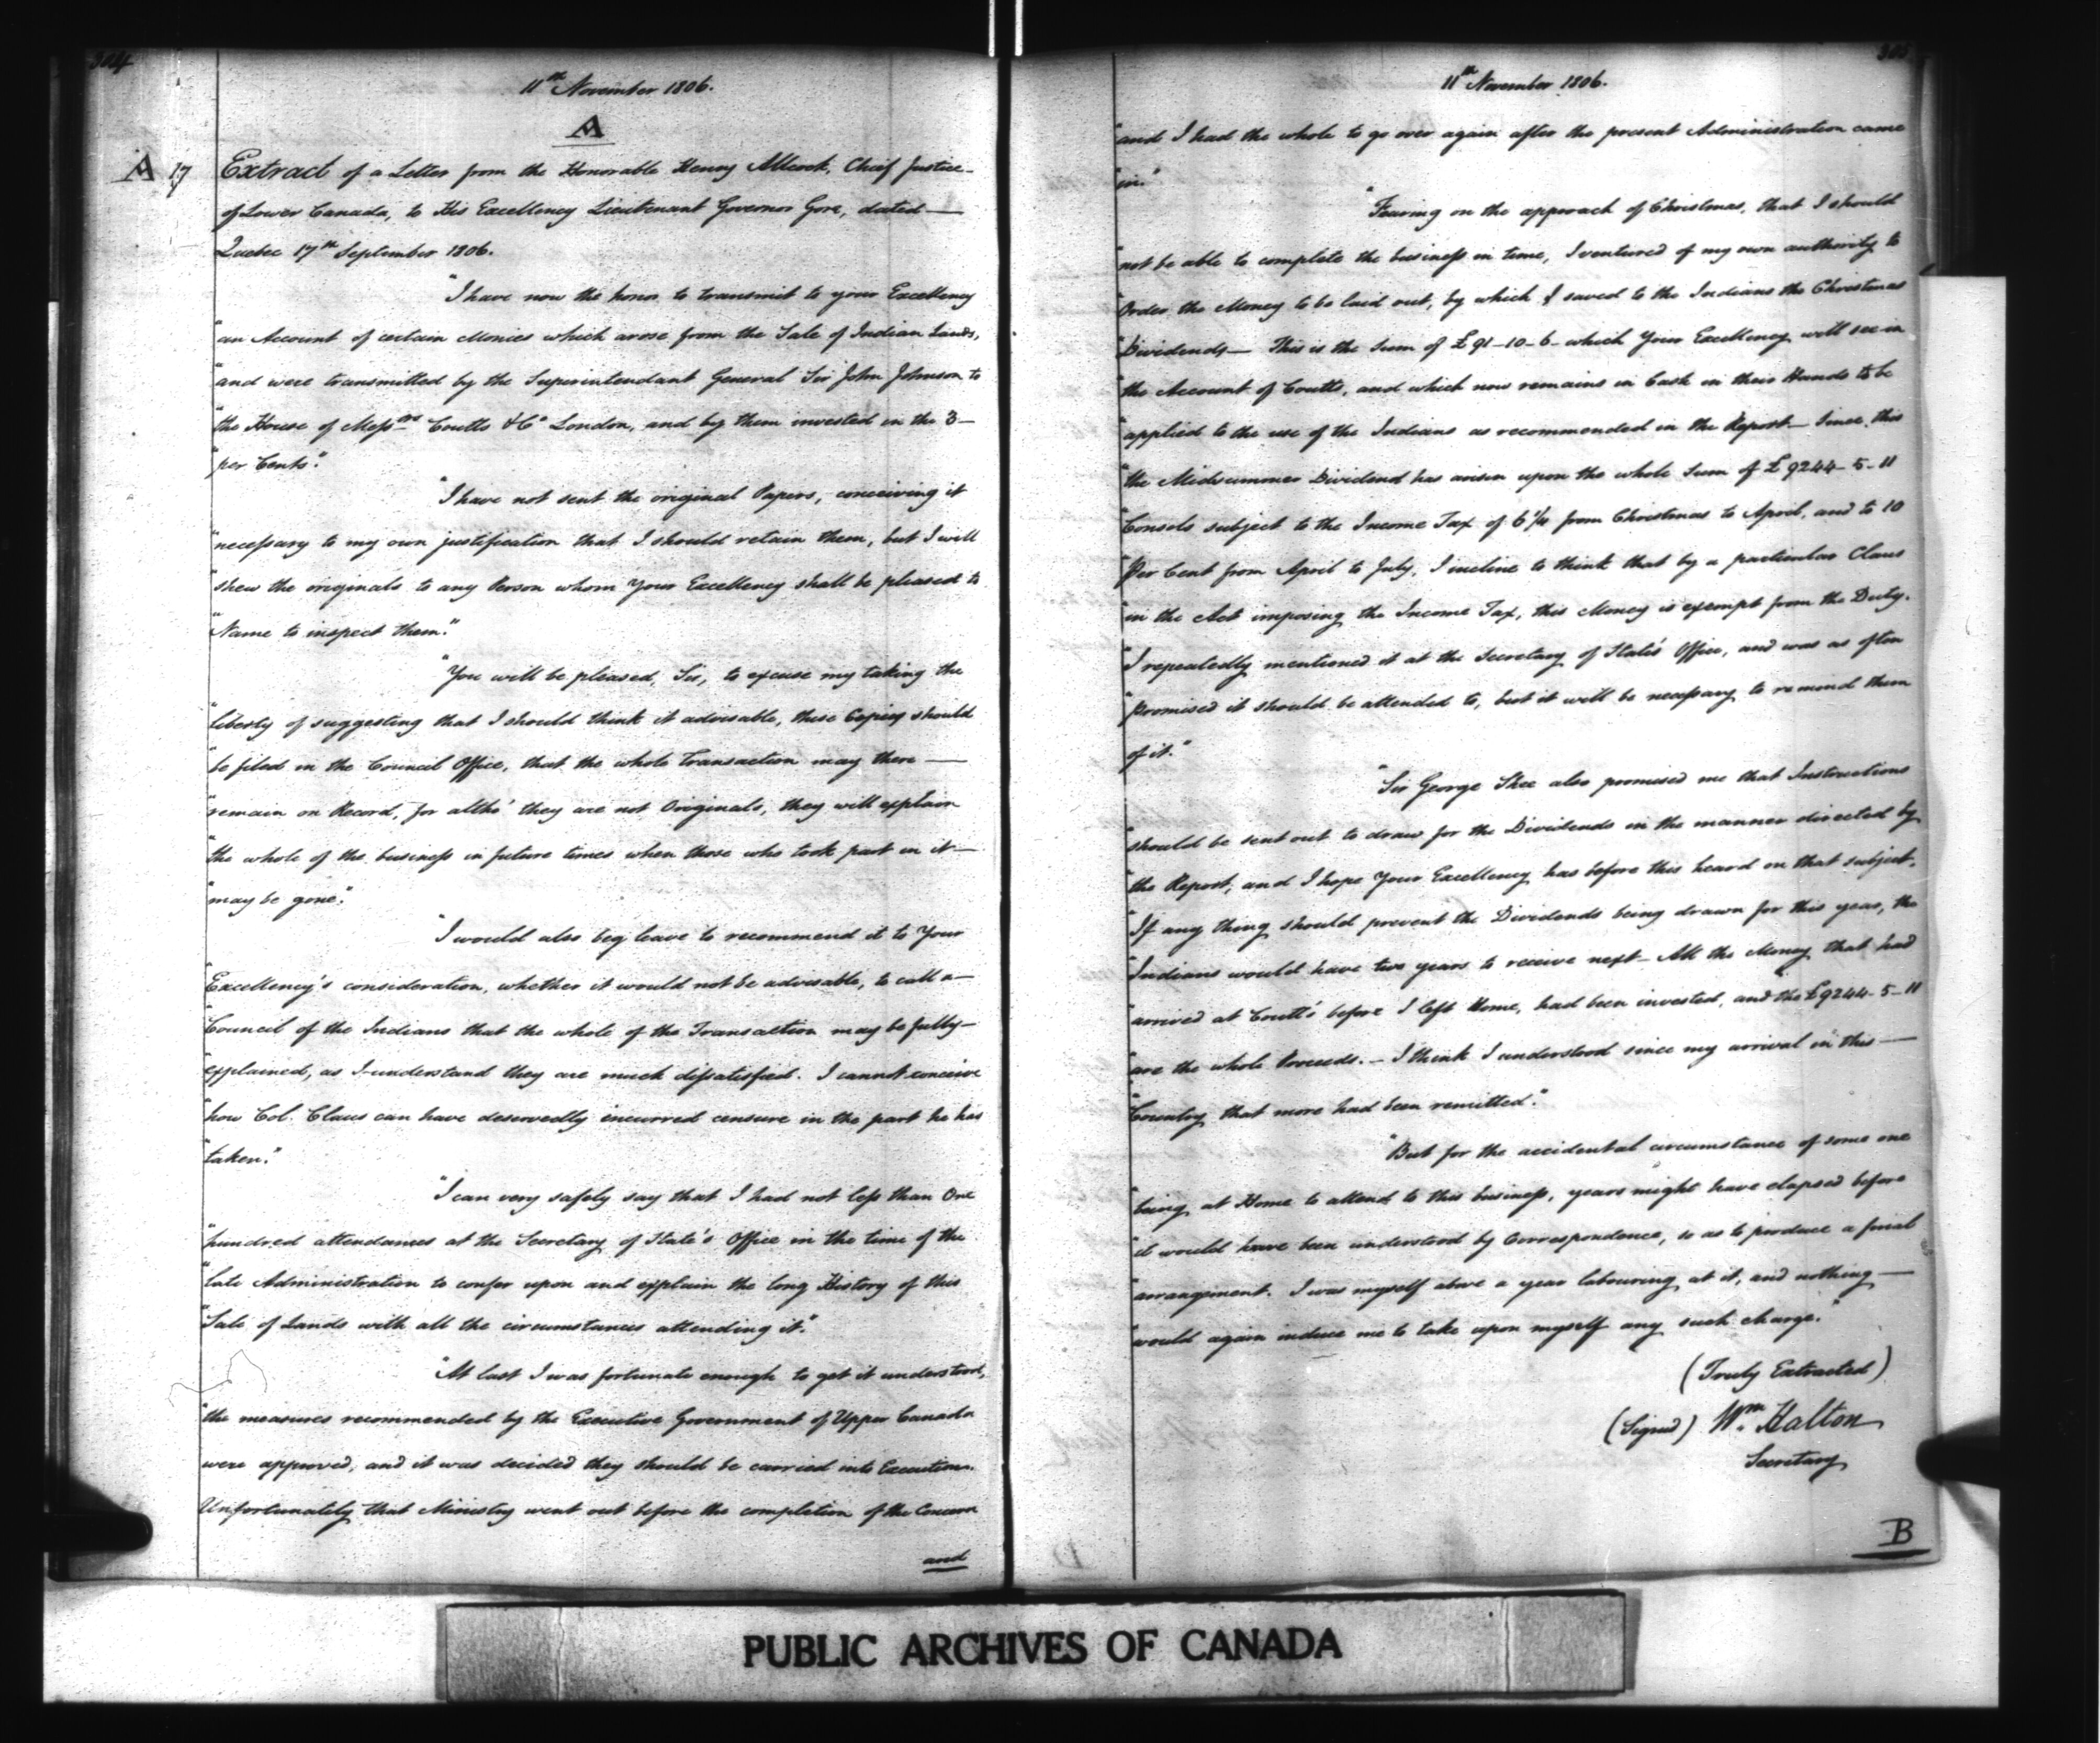 304
11th November 1806.
A
A 17
Extract of a Letter from the Honorable Henry Allcock, Chief Justice
of Lower Canada, to His Excellency Lieutenant Governor Gore, dated —
Quebec 17th September 1806.
"I have now the honor to transmit to your Excellency
"an Account of certain Monies which arose from the Sale of Indian Lands,
"and were transmitted by the Superintendant General Sir John Johnson to
"the House of Messrs Coutts & Co London, and by them invested in the 3 —
"per Cents."
"I have not sent the original Papers, conceiving it
"necessary to my own justification that I should retain them, but I will
"shew the originals to any Person whom Your Excellency shall be pleased to
"Name to inspect them."
"You will be pleased, Sir, to excuse my taking the
"liberty of suggesting that I should think it advisable, these Copies should
"be filed in the Council Office, that the whole Transaction may there —
"remain on Record, for altho' they are not Originals, they will explain
"the whole of the business in future times when those who took part in it —
"may be gone."
"I would also beg leave to recommend it to Your
"Excellency's consideration, whether it would not be advisable, to call a —
"Council of the Indians that the whole of the Transaction may be fully —
"explained, as I understand they are much dissatisfied. I cannot conceive
"how Col. Claus can have deservedly incurred censure in the part he has
"taken."
"I can very safely say that I had not less than One
"hundred attendances at the Secretary of State's Office in the time of the
"late Administration to confer upon and explain the long History of this
"Sale of Lands with all the circumstances attending it."
"At last I was fortunate enough to get it understood,
"the measures recommended by the Executive Government of Upper Canada
were approved, and it was decided they should be carried into Execution.
Unfortunately that Ministry went out before the completion of the Concern
and
305
11th November 1806.
"and I had the whole to go over again after the present Administration came
"in."
"Fearing on the approach of Christmas, that I should
"not be able to complete the business in time, I ventured of my own authority to
"Order the Money to be laid out, by which I saved to the Indians the Christmas
"Dividends — This is the Sum of £91-10-6- which Your Excellency will see in
"the Account of Coutts, and which now remains in Cash in their Hands to be
"applied to the use of the Indians as recommended in the Report — Since this
"the Midsummer Dividend has arisen upon the whole Sum of £9244-5-11
"Consols subject to the Income Tax of 6 1/4 from Christmas to April, and to 10
"Per Cent from April to July. I incline to think that by a particular Claus
"in the Act imposing the Income Tax, this Money is exempt from the Duty.
"I repeatedly mentioned it at the Secretary of State's Office, and was as often
"Promised it should be attended to, but it will be necessary to remind them
of it."
"Sir George Shee also promised me that Instructions
"should be sent out to draw for the Dividends in the manner directed by
"the Report, and I hope Your Excellency has before this heard on that subject.
"If any thing should prevent the Dividends being drawn for this year, the
"Indians would have two years to receive next — All the Money that had
"arrived at Coutt's before I left Home, had been invested, and the £9244-5-11
"are the whole Proceeds. — I think I understood since my arrival in this —
"Country that more had been remitted."
"But for the accidental circumstance of some one
"being at Home to attend to this business, years might have elapsed before
"it would have been understood by Correspondence, so as to produce a final
"arrangement. I was myself above a year labouring at it, and nothing —
"would again induce me to take upon myself any such charge."
(Truly Extracted)
(Signed) Wm. Halton
Secretary
B
PUBLIC ARCHIVES OF CANADA